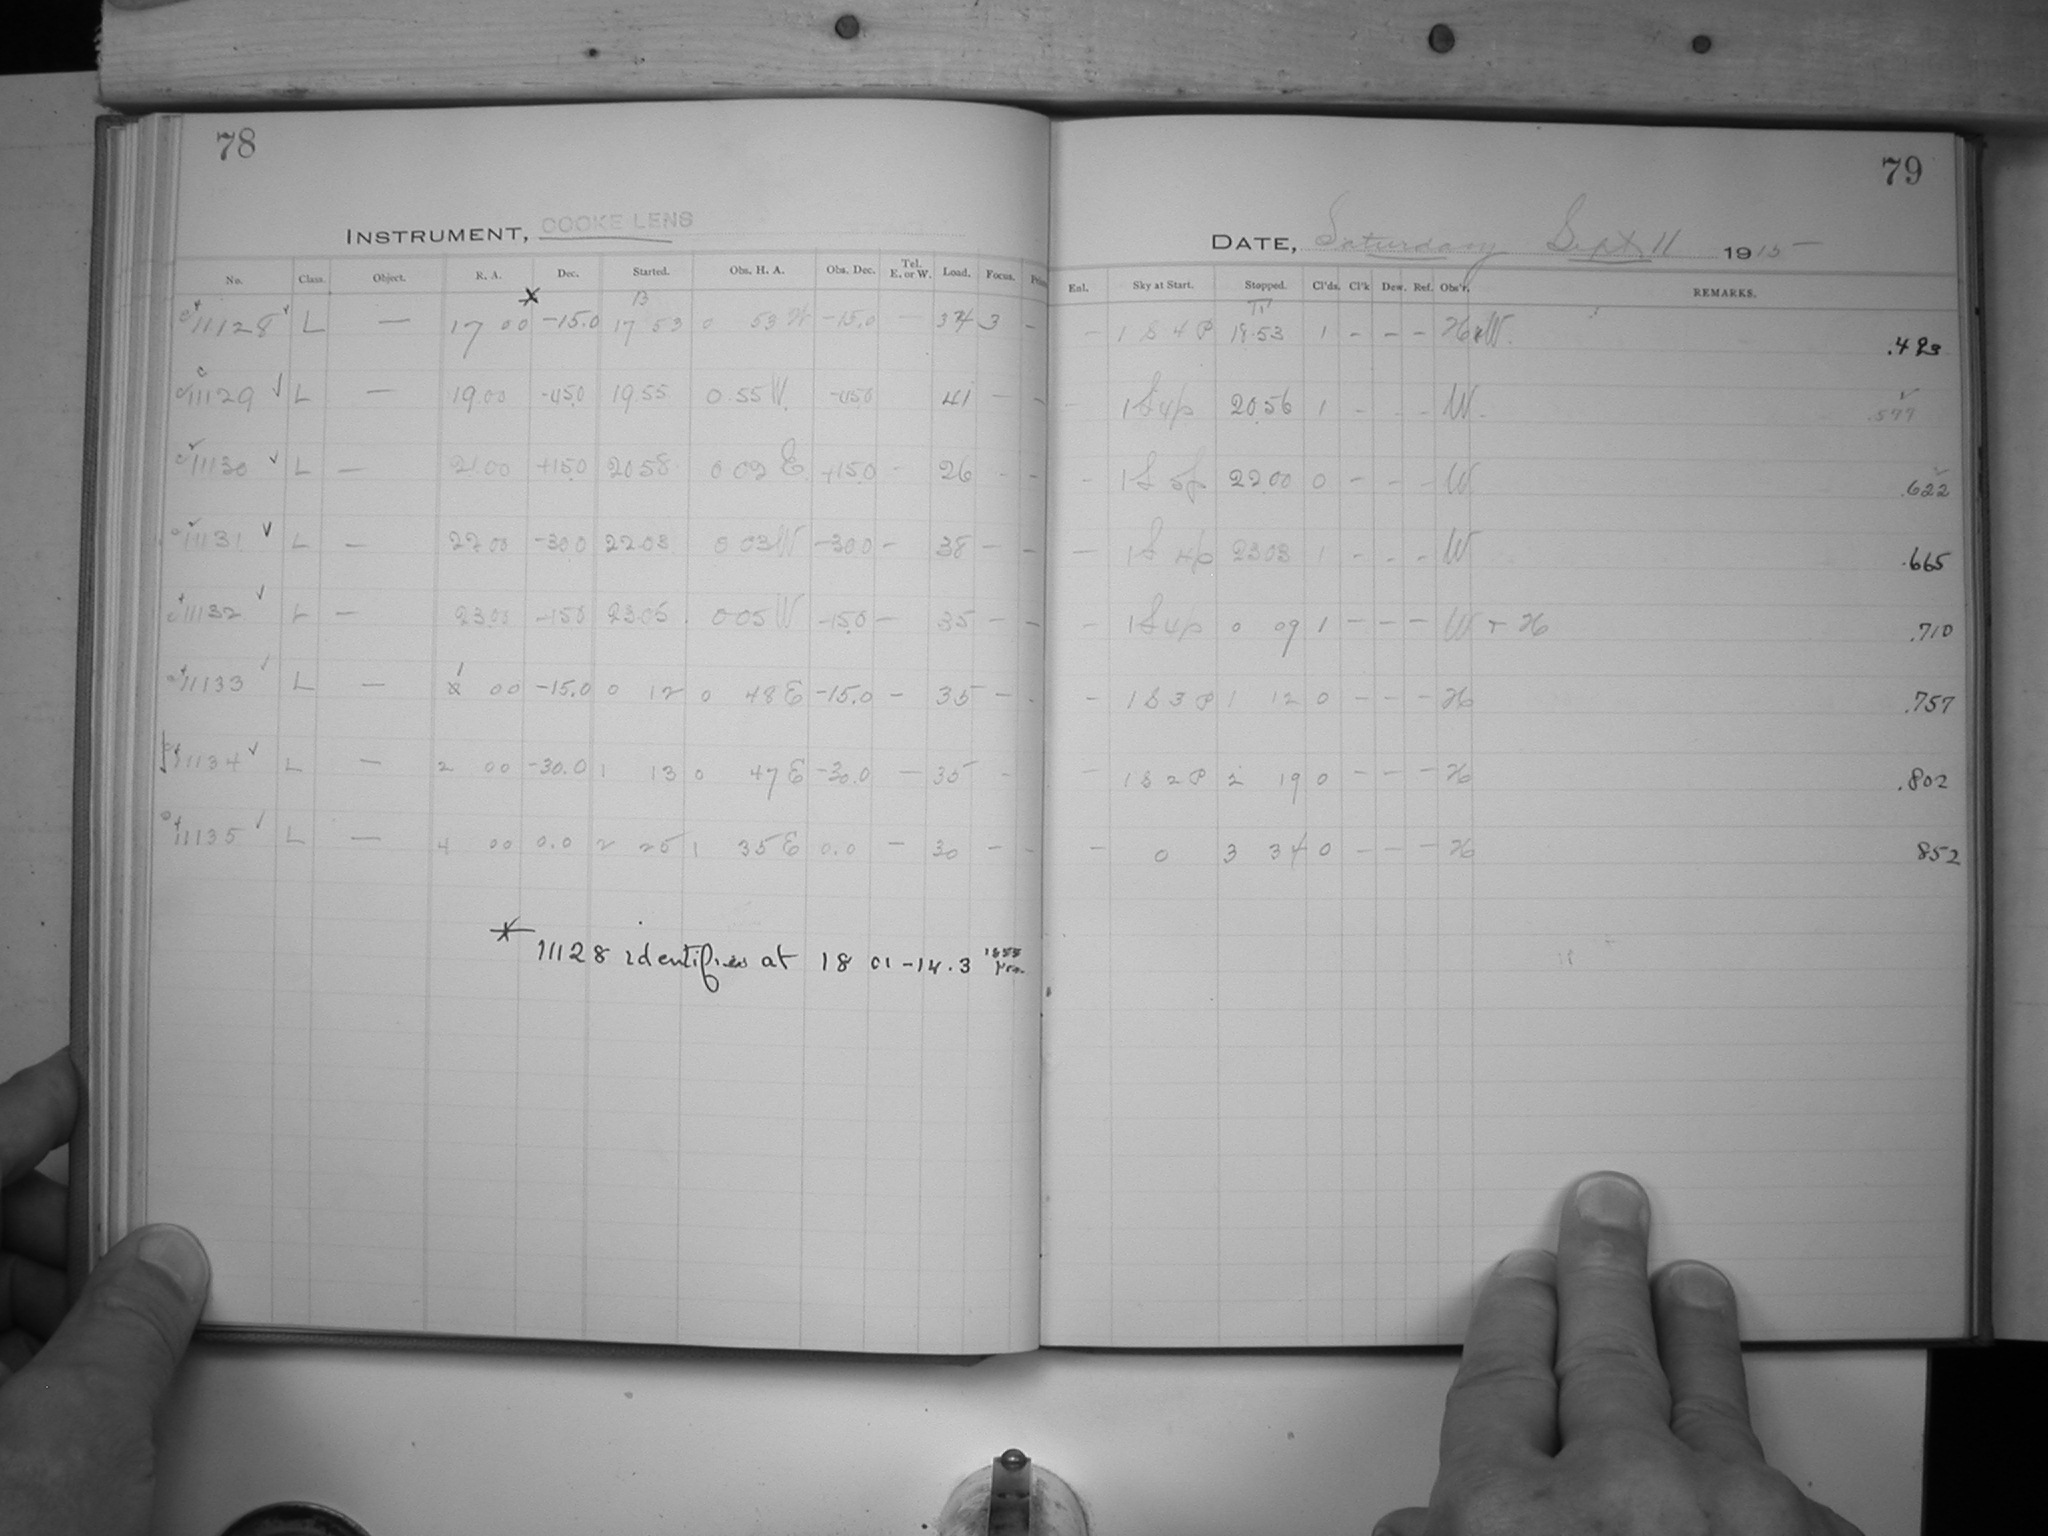 78
INSTRUMENT, COOKE LENS
No. Class. Object. R. A. Dec. Started. Obs. H. A. Obs. Dec. Tel. E. or W. Load. Focus.
11128 L — 17 00 -15.0 17 53 0 53 W -15.0 — 34 3 -
11129 L — 19.00 -45.0 19.55 0.55 W. -45.0 41 — —
11130 L — 21.00 +15.0 20 58 0 02 E +15.0 - 26 - -
11131 L — 22 00 -30.0 22.03 0 03 W -30.0 - 38 — —
11132 L — 23.00 -15.0 23.05 0 05 W -15.0 — 35 — —
11133 L — 1 00 -15.0 0 12 0 48 E -15.0 - 35 — -
11134 L — 2 00 -30.0 1 13 0 47 E -30.0 — 35 -
11135 L — 4 00 0.0 2 25 1 35 E 0.0 — 30 - -
* 11128 identifies at 18 01 -14.3
79
DATE, Saturday Sept 11 1915
Enl. Sky at Start. Stopped. Cl'ds. Cl'k Dew. Ref. Obs'r. REMARKS.
— 1 S 4 P 18.53 1 - - - W.
1 S 4 p 20.56 1 - - - W. .577
- 1 S 5 p 22.00 0 - - - W .622
— 1 S 4 p 23 03 1 - - - W .665
- 1 S 4 p 0 09 1 - - - W + H .710
- 1 S 3 P 1 12 0 - - - H .757
— 1 S 2 P 2 19 0 - - - H .802
- 0 3 34 0 - - - H 852